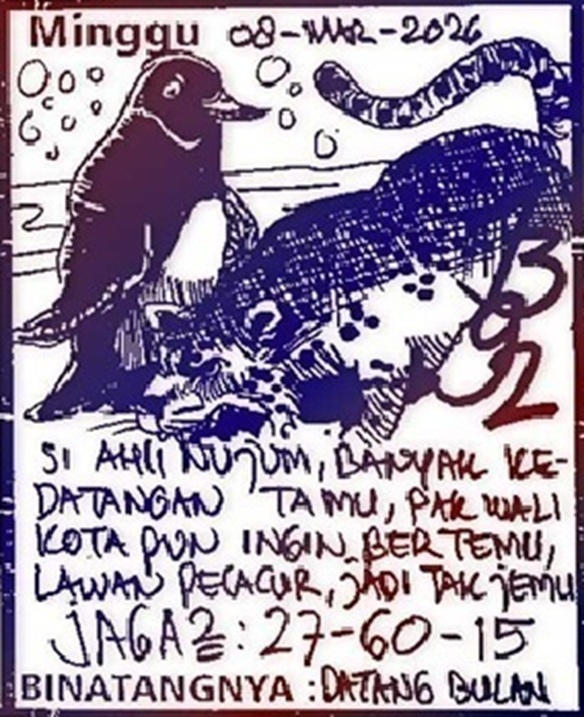 Minggu 08-MAR-2026
SI AHLI NUJUM, BANYAK KE-
DATANGAN TAMU, PAK WALI
KOTA PUN INGIN BERTEMU,
LAWAN PELACUR, JADI TAK JEMU
JAGA2: 27-60-15
BINATANGNYA : DATANG BULAN